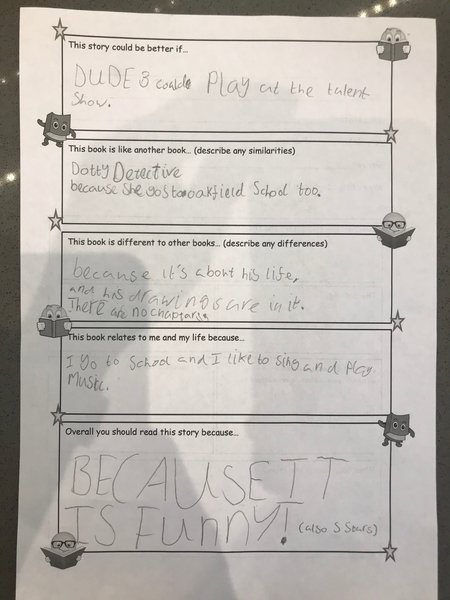 This story could be better if...
DUDE 3 could Play at the talent
Show.
This book is like another book... (describe any similarities)
Dotty Detective
because She gos to oakfield School too.
This book is different to other books... (describe any differences)
because it's about his life,
and his drawings are in it.
There are no chaptars
This book relates to me and my life because...
I go to School and I like to sing and Play
Music.
Overall you should read this story because...
BECAUSE IT
IS Funny! (also 5 Stars)